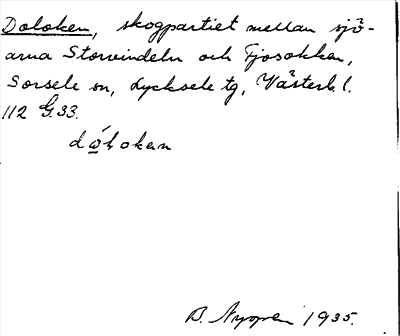 Doloken, skogpartiet mellan sjö-
arna Storvindeln och Fjosokken,
Sorsele sn, Lycksele tg, Västerb. l.
112 G.33.
dώ̲lokan
B. Nygren 1935.